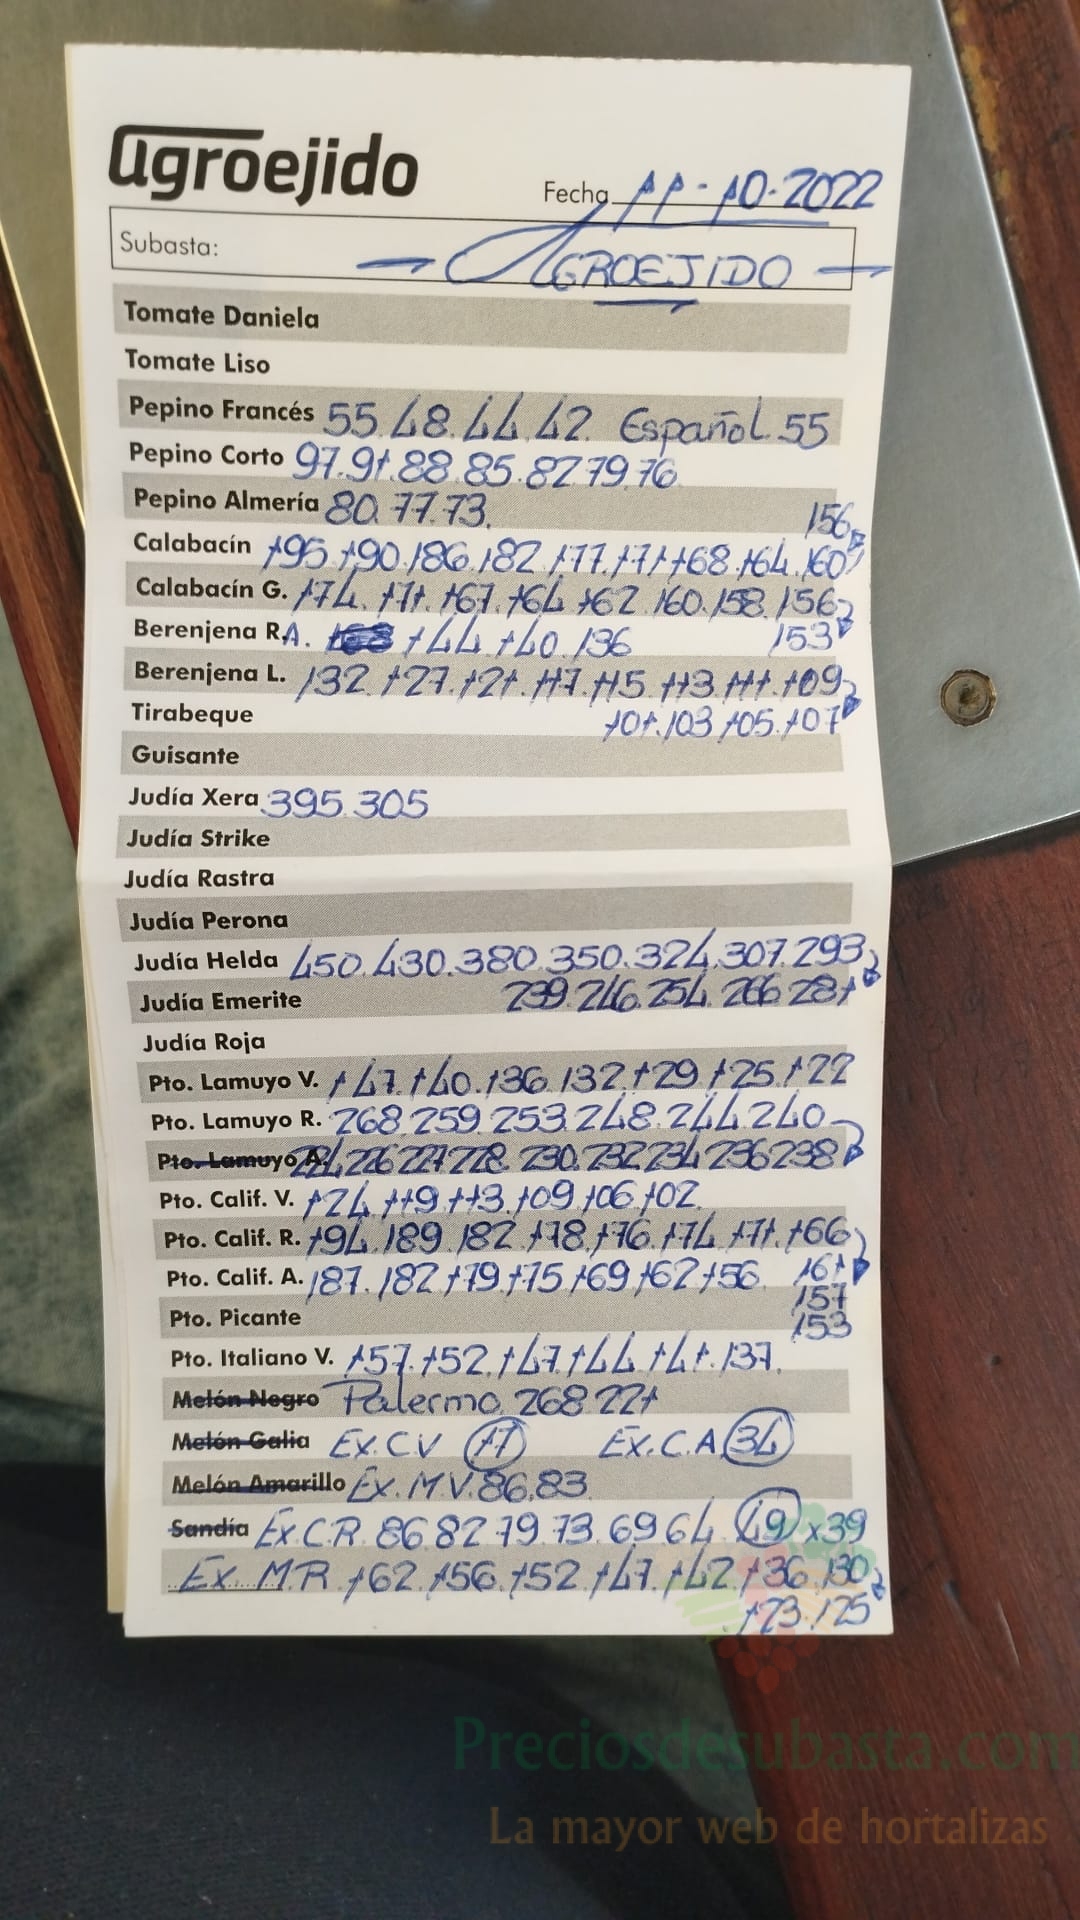 agroejido
Fecha 11-10-2022
Subasta: — AGROEJIDO —
Tomate Daniela
Tomate Liso
Pepino Francés 55.48.44.42. Español.55
Pepino Corto 97.91.88.85.82.79.76
Pepino Almería 80.77.73.
156
Calabacín 195.190.186.182.177.171.168.164.160
Calabacín G. 174.171.167.164.162.160.158.156
Berenjena RA. 144.140.136 153
Berenjena L. 132.127.121.117.115.113.111.109
Tirabeque 101.103.105.107
Guisante
Judía Xera 395.305
Judía Strike
Judía Rastra
Judía Perona
Judía Helda 450.430.380.350.324.307.293
Judía Emerite 239.246.254.266.281
Judía Roja
Pto. Lamuyo V. 147.140.136.132.129.125.122
Pto. Lamuyo R. 268.259.253.248.244.240
Pto. Lamuyo A. 224.226.227.228.230.232.234.236.238
Pto. Calif. V. 124.119.113.109.106.102
Pto. Calif. R. 194.189.182.178.176.174.171.166
Pto. Calif. A. 187.182.179.175.169.162.156 161
157
Pto. Picante 153
Pto. Italiano V. 157.152.147.144.141.137.
Melón Negro Palermo. 268.221
Melón Galia Ex.C.V 17 Ex.C.A 34
Melón Amarillo Ex.M.V.86.83
Sandía Ex.C.R. 86.82.79.73.69.64 49 x39
Ex. M.R. 162.156.152.147.142.136.130
123.125
Preciosdesubasta.com
La mayor web de hortalizas